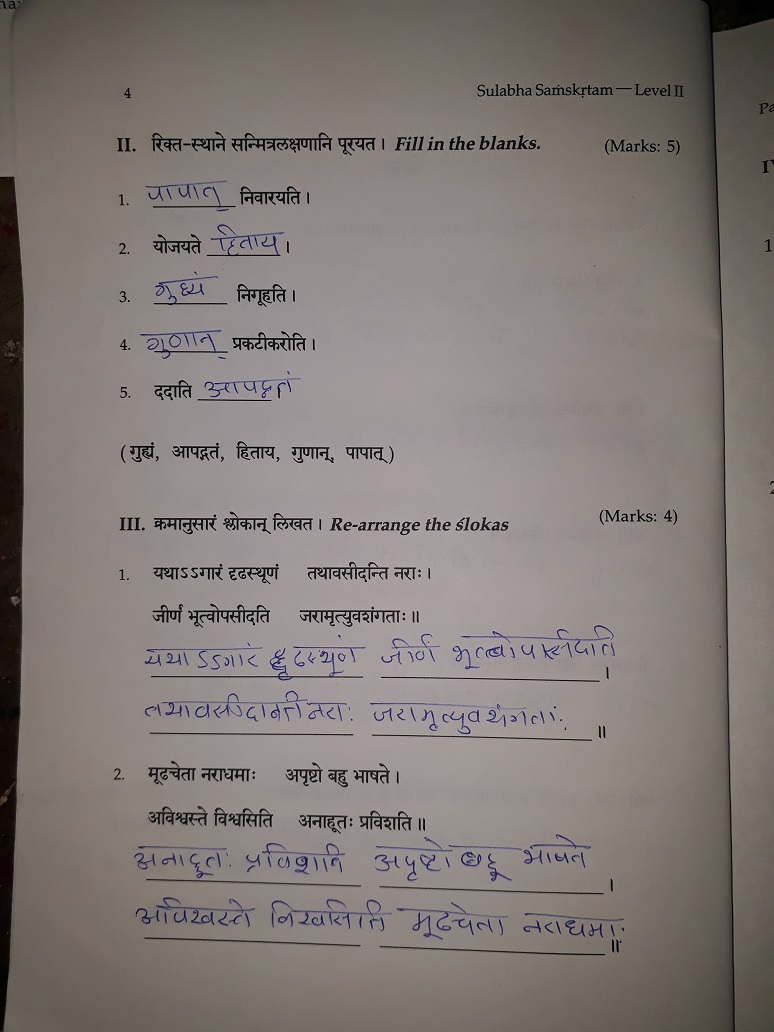 4 Sulabha Saṁskṛtam — Level II
II. रिक्त-स्थाने सन्मित्रलक्षणानि पूरयत। Fill in the blanks. (Marks: 5)
1. पापात् निवारयति।
2. योजयते हिताय।
3. गुध्यं निगूहति।
4. गुणान् प्रकटीकरोति।
5. ददाति आपद्गतं।
(गुह्यं, आपद्गतं, हिताय, गुणान्, पापात्)
III. क्रमानुसारं श्लोकान् लिखत। Re-arrange the ślokas (Marks: 4)
1. यथाऽऽगारं दृढस्थूणं तथावसीदन्ति नराः।
जीर्ण भूत्वोपसीदति जरामृत्युवशंगताः॥
यथाऽऽगारं दृढस्थूणं जीर्णं भूत्वोपसीदति।
तथावसीदान्ती नराः जरामृत्युवशंगताः॥
2. मूढचेता नराधमाः अपृष्टो बहु भाषते।
अविश्वस्ते विश्वसिति अनाहूतः प्रविशति॥
अनाहूतः प्रविशति अपृष्टो बहु भाषते।
अविश्वस्ते विश्वसिति मूढचेता नराधमाः॥